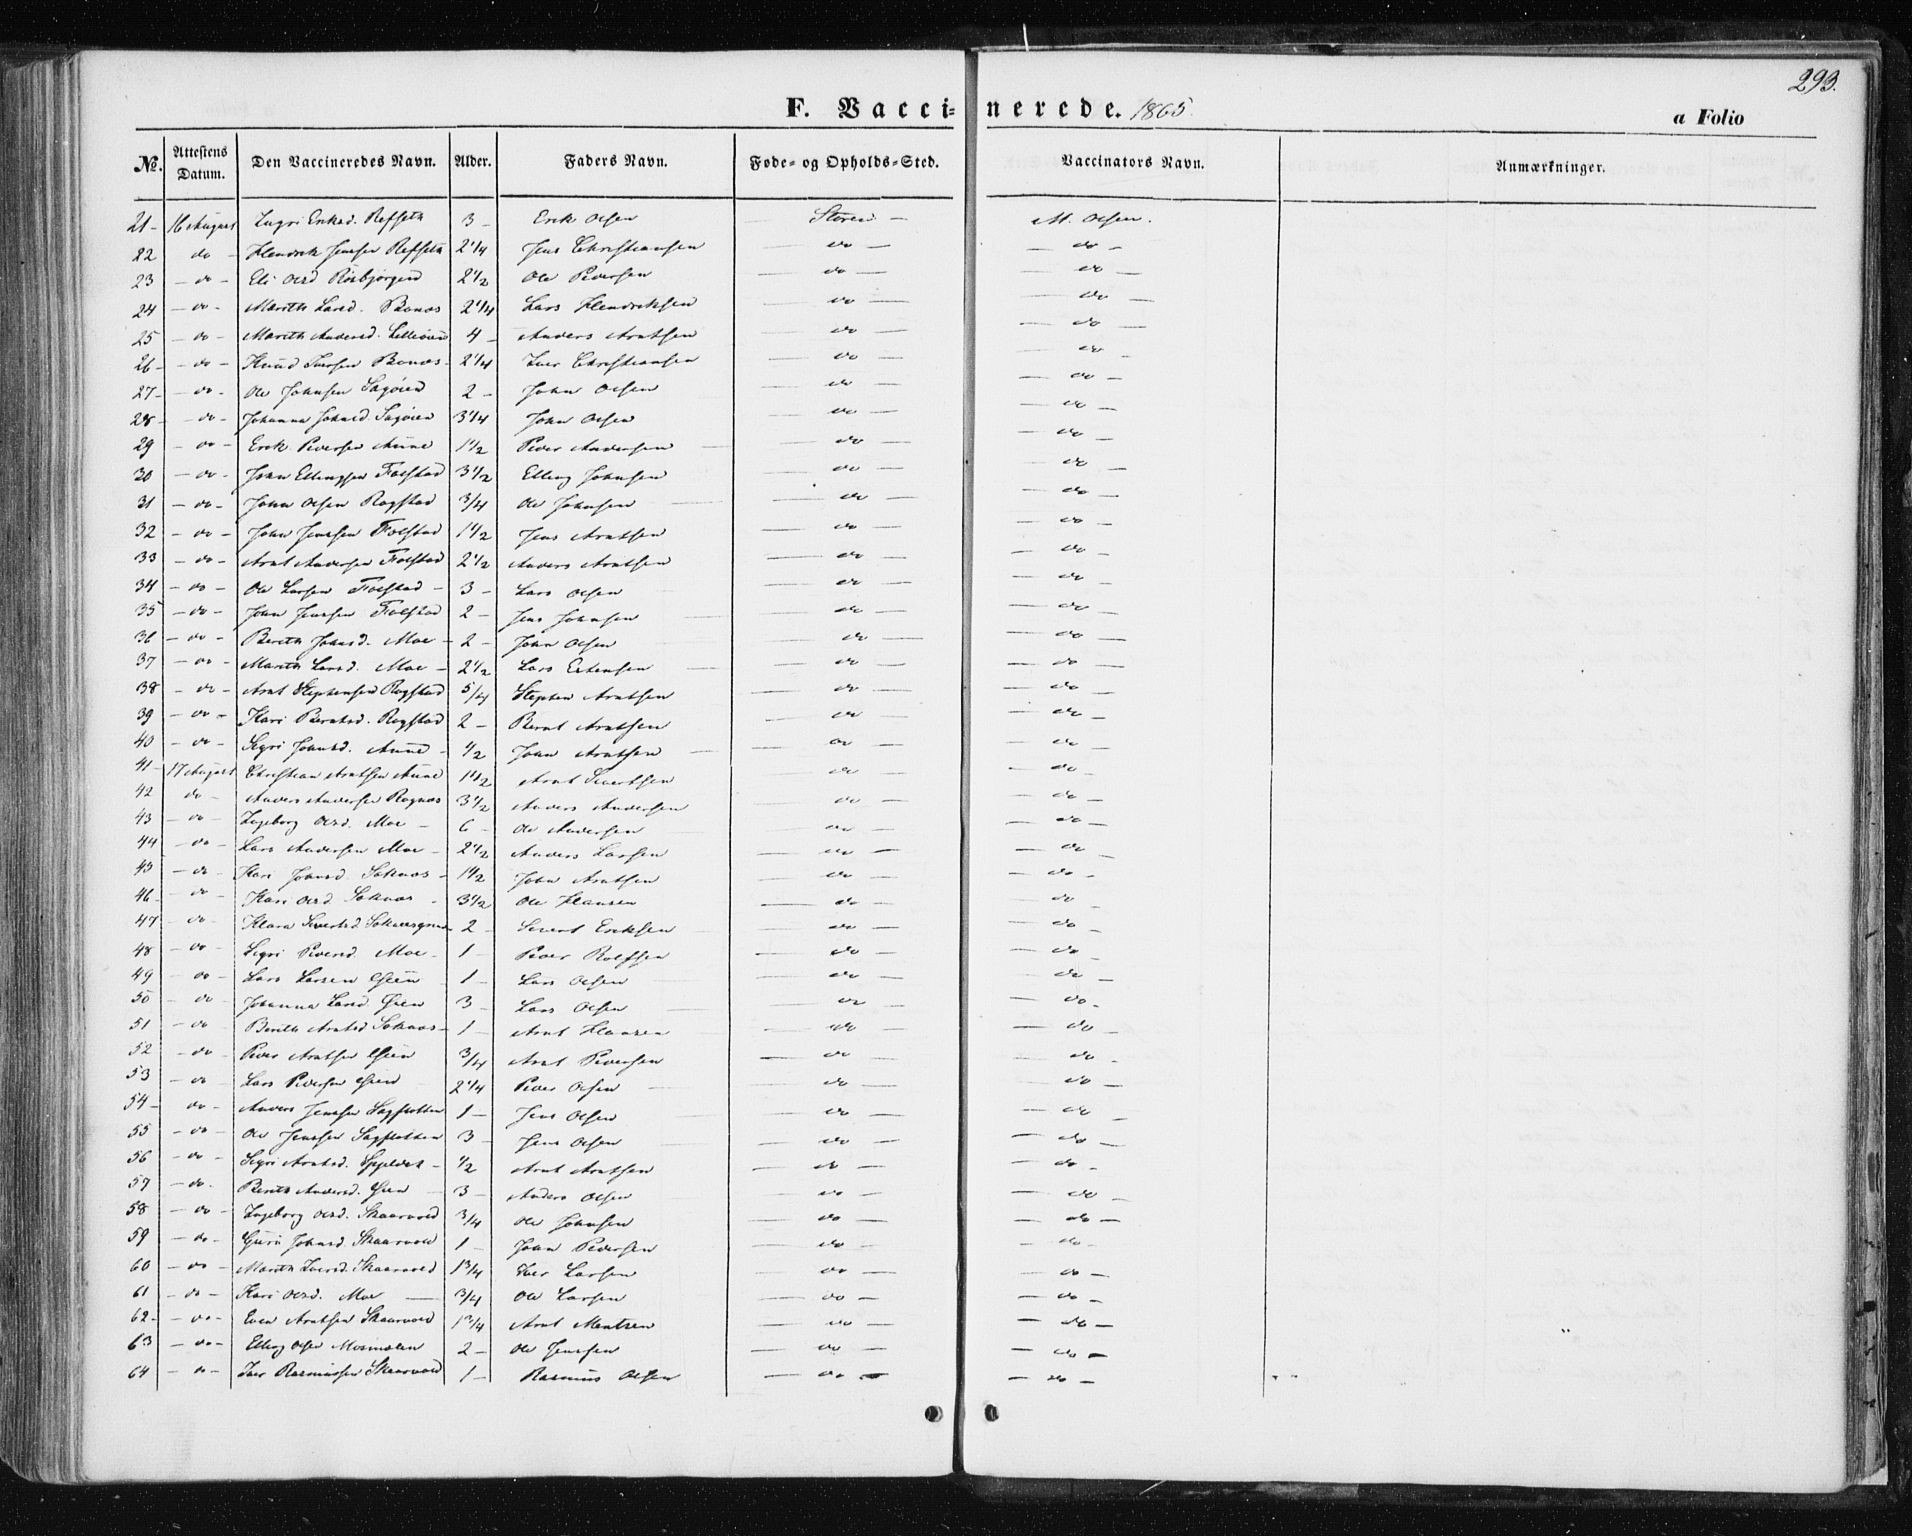 293.
F. Vaccinerede. 1865.
a Folio
No. Attestens Datum. Den Vaccineredes Navn. Alder. Faders Navn. Føde- og Opholds-Sted. Vaccinators Navn. Anmærkninger.
21 - 16 August Ingri Eriksd. Refseth 3 - Erik Olsen Støren - M. Olsen.
22 do - Hendrik Jenssen Refseth 2 1/4 Jens Christiansen - do - - do -
23 - do - Eli Olsd 2 1/2 Ole Pedersen - do - - do -
24 - do - Marith Larsd. Bonæs 2 1/4 Lars Hendriksen - do - - do -
25 - do - Marith Andersd. 4 - Anders Arntsen - do - - do -
26 - do - Knud Iversen Bonæs - 2 1/4 Iver Christiansen - do - - do -
27 - do - Ole Johnsen Sagøien 2 - John Olsen - do - - do -
28 - do - Johanna Johnsd Sagøien 3 1/4 John Olsen - do - - do -
29 - do - Erik Pedersen Aune 1 1/2 Peder Andersen - do - - do -
30 - do - John Ellingsen Folstad 3 1/2 Elling Johnsen - do - - do -
31 - do - John Olsen Rogstad 3/4 Ole Johnsen - do - - do -
32 - do - John Jenssen Folstad 1 1/2 Jens Arntsen - do - - do -
33 - do - Arnt Andersen Folstad 2 1/2 Anders Arntsen - do - - do -
34 - do - Ole Larsen Folstad - 3 - Lars Olsen - do - - do -
35 - do - John Jenssen Folstad 2 - Jens Johnsen - do - - do -
36 - do - Berith Johnsd. Moe - 2 - John Olsen - do - - do -
37 - do - Marith Larsd. Moe - 2 1/2 Lars Estensen - do - - do -
38 - do - Arnt Stephensen Rogstad 5/4 Stephen Arntsen - do - - do -
39 - do - Kari Berntsd. Rogstad 2 - Bernt Arntsen - do - - do -
40 - do - Sigri Johnsd. Aune - 1/2 John Arntsen - do - - do -
41 - 17 August Christian Arntsen Aune 1 1/2 Arnt Sivertsen - do - - do -
42 do - Anders Andersen Rognæs 3 1/2 Anders Andersen - do - - do -
43 - do - Ingeborg Olsd. Moe - 6 - Ole Andersen - do - - do -
44 - do - Lars Andersen Moe - 2 1/2 Anders Larsen - do - - do -
45 - do - Kari Johnsd Soknæs - 1 1/2 John Arntsen - do - - do -
46 - do - Kari Olsd Soknæs - 3 1/2 Ole Hansen - do - - do -
47 - do - Klara Sivertsd 2 - Sivert Eriksen - do - - do -
48 - do - Sigri Pedersd. Moe - 1 - Peder Rolfsen - do - - do -
49 - do - Lars Larsen Øien 1 - Lars Olsen - do - - do -
50 - do - Johanna Larsd Øien 3 - Lars Olsen - do - - do -
51 - do - Berith Arntsd Soknæs - 1 - Arnt Hansen - do - - do -
52 - do - Peder Arntsen Øien 3/4 Arnt Pedersen - do - - do -
53 - do - Lars Pedersen Øien 2 1/4 Peder Olsen - do - - do -
54 - do - Anders Jenssen Sagflotten 1 - Jens Olsen - do - - do -
55 - do - Ole Jenssen Sagflotten 3 - Jens Olsen - do - - do -
56 - do - Sigri Arntsd. 1/2 Arnt Arntsen - do - - do -
57 - do - Berith Andersd. Øien - 3 - Anders Olsen - do - - do -
58 - do - Ingeborg Olsd. Skaarvold 3/4 Ole Johnsen - do - - do -
59 - do - Guri Johnsd. Skaarvold 1 - John Pedersen - do - - do -
60 - do - Marith Iversd. Skaarvold 1 3/4 Iver Larsen - do - - do -
61 - do - Kari Olsd. Moe - 3/4 Ole Larsen - do - - do -
62 - do - Even Arntsen Skaarvold 1 3/4 Arnt Mentzen - do - - do -
63 - do - Elling Olsen Moemoen 2 - Ole Jenssen - do - - do -
64 - do - Iver Rasmussen Skaarvold 1 - Rasmus Olsen - do - - do -